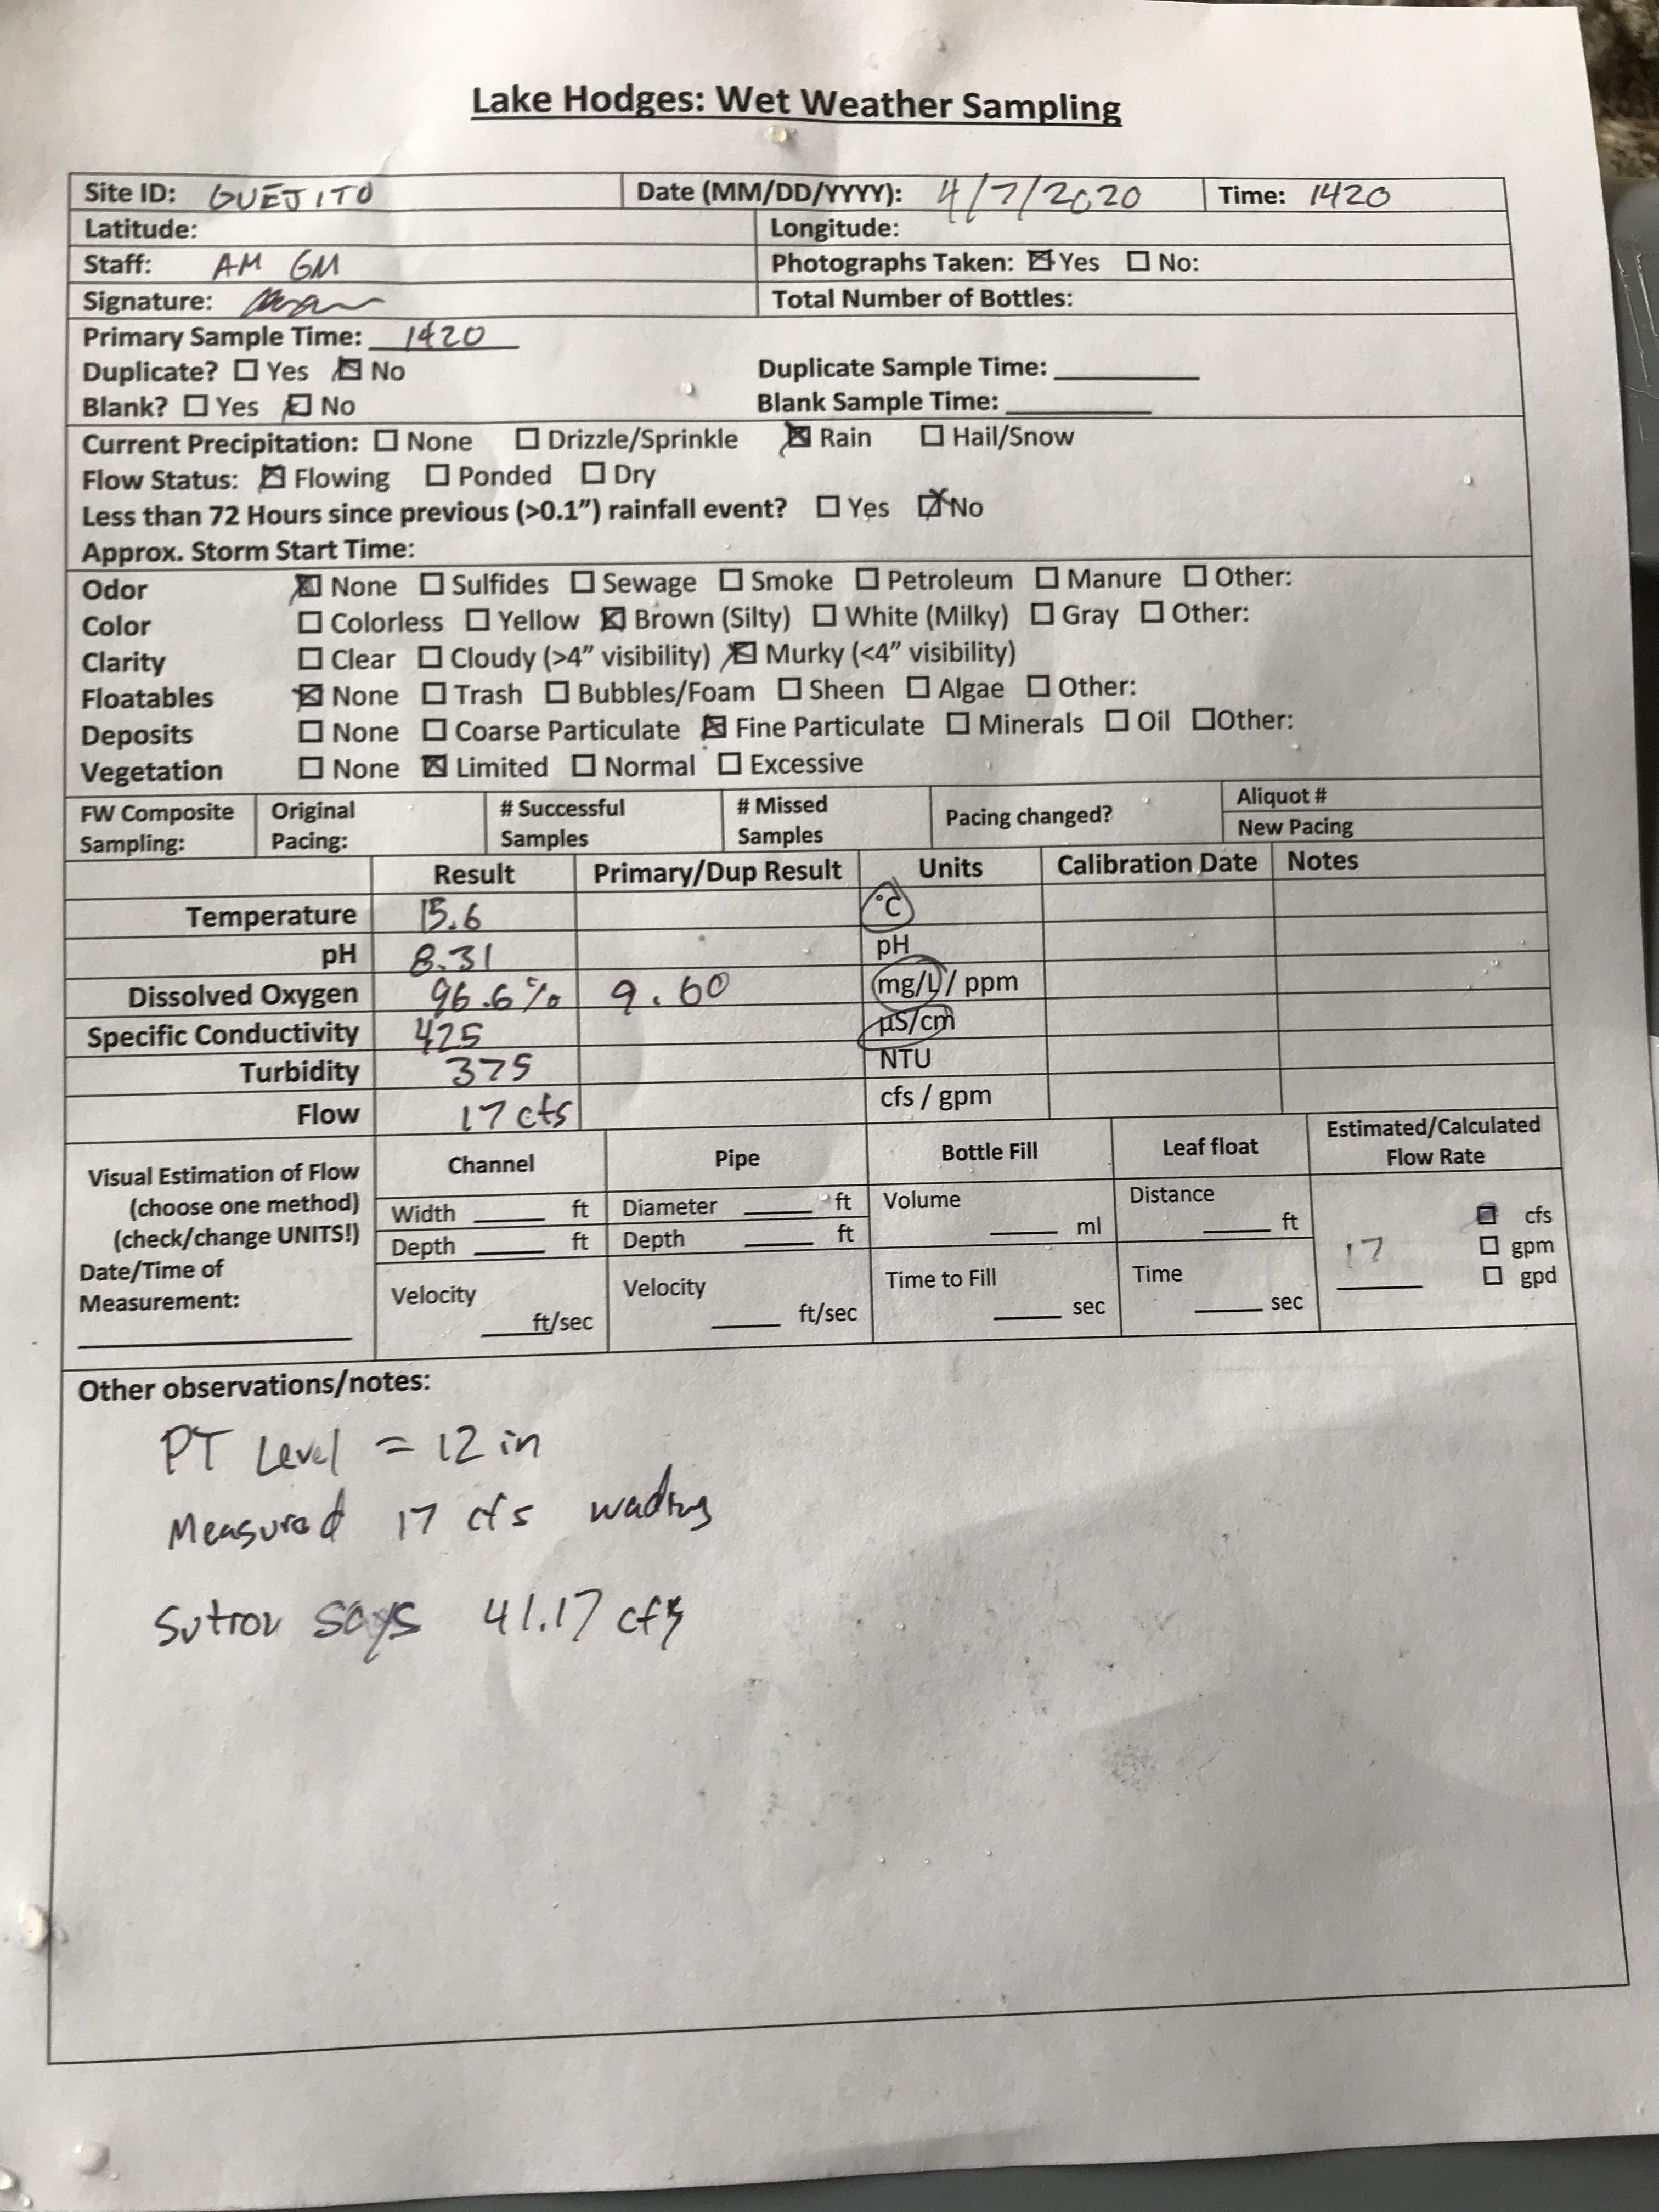 Lake Hodges: Wet Weather Sampling
Site ID: GUEJITO Date (MM/DD/YYYY): 4/7/2020 Time: 1420
Latitude: Longitude:
Staff: AM GM Photographs Taken: ☒ Yes ☐ No:
Signature: Total Number of Bottles:
Primary Sample Time: 1420
Duplicate? ☐ Yes ☒ No Duplicate Sample Time: ________
Blank? ☐ Yes ☒ No Blank Sample Time: ________
Current Precipitation: ☐ None ☐ Drizzle/Sprinkle ☒ Rain ☐ Hail/Snow
Flow Status: ☒ Flowing ☐ Ponded ☐ Dry
Less than 72 Hours since previous (>0.1”) rainfall event? ☐ Yes ☒ No
Approx. Storm Start Time:
Odor ☒ None ☐ Sulfides ☐ Sewage ☐ Smoke ☐ Petroleum ☐ Manure ☐ Other:
Color ☐ Colorless ☐ Yellow ☒ Brown (Silty) ☐ White (Milky) ☐ Gray ☐ Other:
Clarity ☐ Clear ☐ Cloudy (>4” visibility) ☒ Murky (<4” visibility)
Floatables ☒ None ☐ Trash ☐ Bubbles/Foam ☐ Sheen ☐ Algae ☐ Other:
Deposits ☐ None ☐ Coarse Particulate ☒ Fine Particulate ☐ Minerals ☐ Oil ☐ Other:
Vegetation ☐ None ☒ Limited ☐ Normal ☐ Excessive
FW Composite Sampling: Original Pacing: # Successful Samples # Missed Samples Pacing changed? Aliquot #
New Pacing
Result Primary/Dup Result Units Calibration Date Notes
Temperature 15.6 °C
pH 8.31 pH
Dissolved Oxygen 96.6% 9.60 mg/L / ppm
Specific Conductivity 425 µS/cm
Turbidity 375 NTU
Flow 17 cfs cfs / gpm
Visual Estimation of Flow
(choose one method)
(check/change UNITS!)
Date/Time of
Measurement:
Channel
Width ____ ft
Depth ____ ft
Velocity
____ ft/sec
Pipe
Diameter ____ ft
Depth ____ ft
Velocity
____ ft/sec
Bottle Fill
Volume
____ ml
Time to Fill
____ sec
Leaf float
Distance
____ ft
Time
____ sec
Estimated/Calculated
Flow Rate
17
☒ cfs
☐ gpm
☐ gpd
Other observations/notes:
PT Level = 12 in
Measured 17 cfs wading
Sutron says 41.17 cfs